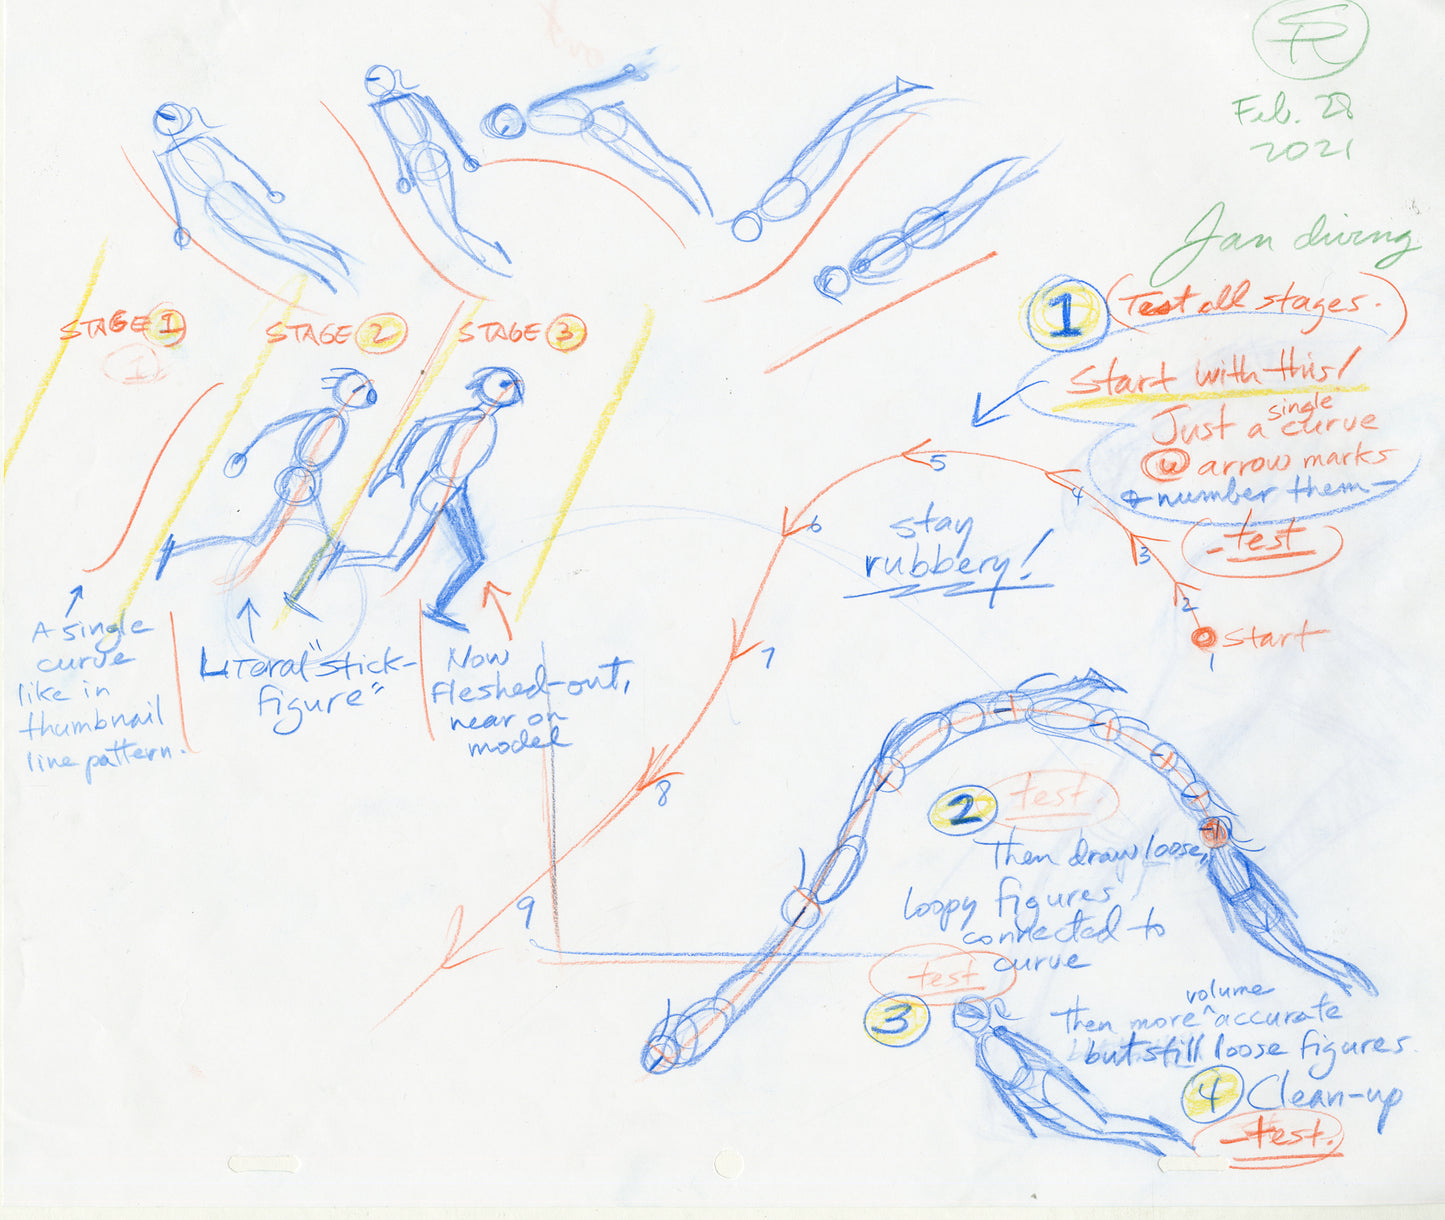 SR
Feb. 28
2021
Jan diving
STAGE 1
1
STAGE 2
STAGE 3
1 (Test all stages.)
Start with this!
Just a single curve
w arrow marks
& number them -
- test
stay
rubbery!
start
1
2
3
4
5
6
7
8
9
A single
curve
like in
thumbnail
line pattern.
Literal "stick-
figure"
Now
fleshed-out,
near on
model
2 test.
Then draw loose,
loopy figures
connected to
curve
test
3
Then more volume accurate
but still loose figures.
4 Clean-up
test.